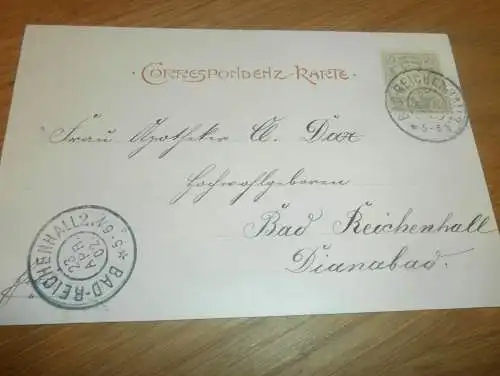 · CORRESPONDENZ-KARTE ·
BAD-REICHENHALL 2
5-6 N
Frau Apotheker O. Dax
Hochwohlgeboren
Bad Reichenhall
Dianabad.
BAD-REICHENHALL 2. 5-6 N.
23
APR.
02